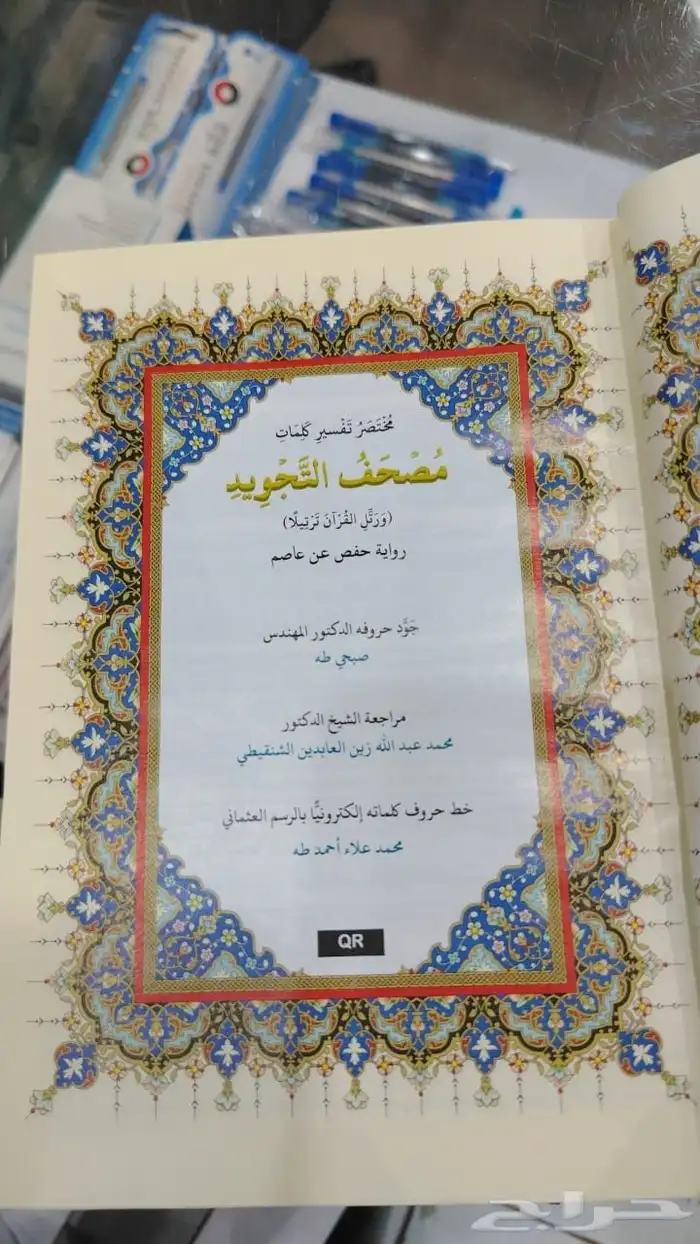 مُخْتَصَرُ تَفْسِيرِ كَلِمَاتِ
مُصْحَفُ التَّجْوِيدِ
(وَرَتِّلِ القُرْآنَ تَرْتِيلًا)
رواية حفص عن عاصم
جَوَّد حروفه الدكتور المهندس
صبحي طه
مراجعة الشيخ الدكتور
محمد عبد الله زين العابدين الشنقيطي
خط حروف كلماته إلكترونيًّا بالرسم العثماني
محمد علاء أحمد طه
QR
حراج